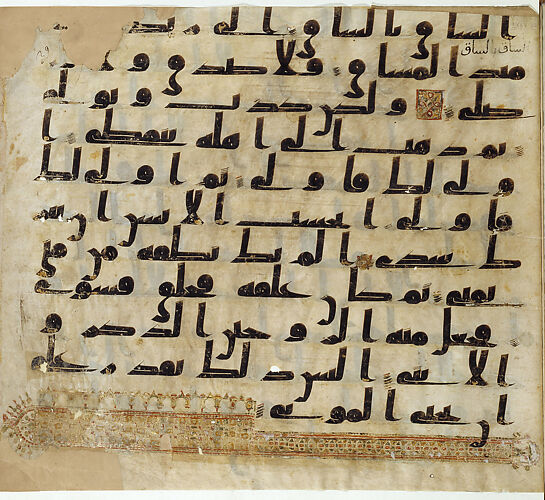 الساق بالساق الى ربك يو
الساق بالساق
مئذ المساق فلا صدق ولا
صلى ولكن كذب وتولى
ثم ذهب الى اهله يتمطى ا
ولى لك فاولى ثم اولى لك
فاولى ايحسب الانسن ان يتر
ك سدى الم يك نطفة من مني
يمنى ثم كان علقة فخلق فسوى
فجعل منه الزوجين الذكر و
الانثى اليس ذلك بقدر على
ان يحيي الموتى